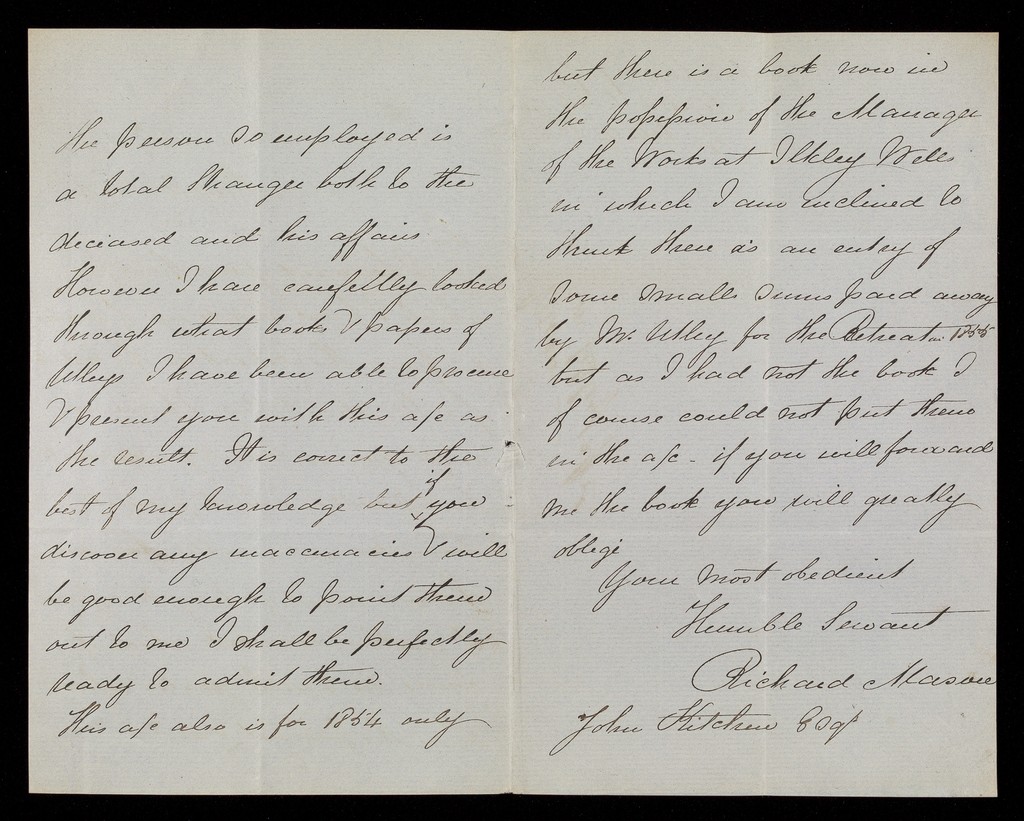 the person so employed is
a total stranger both to the
deceased and his affairs
However I have carefully looked
through what books & papers of
Utleys I have been able to procure
& present you with this a/c as
the result. It is correct to the
best of my knowledge but if you
discover any inaccuracies & will
be good enough to point them
out to me I shall be perfectly
ready to admit them.
This a/c also is for 1854 only
but there is a book now in
the possession of the Manager
of the Works at Ilkley Wells
in which I am inclined to
think there is an entry of
some small sums paid away
by Mr. Utley for the Retreat in 1855
but as I had not the book I
of course could not put them
in the a/c - if you will forward
me the book you will greatly
oblige
Your most obedient
Humble Servant
Richard Mason
John Kitchen Esqr